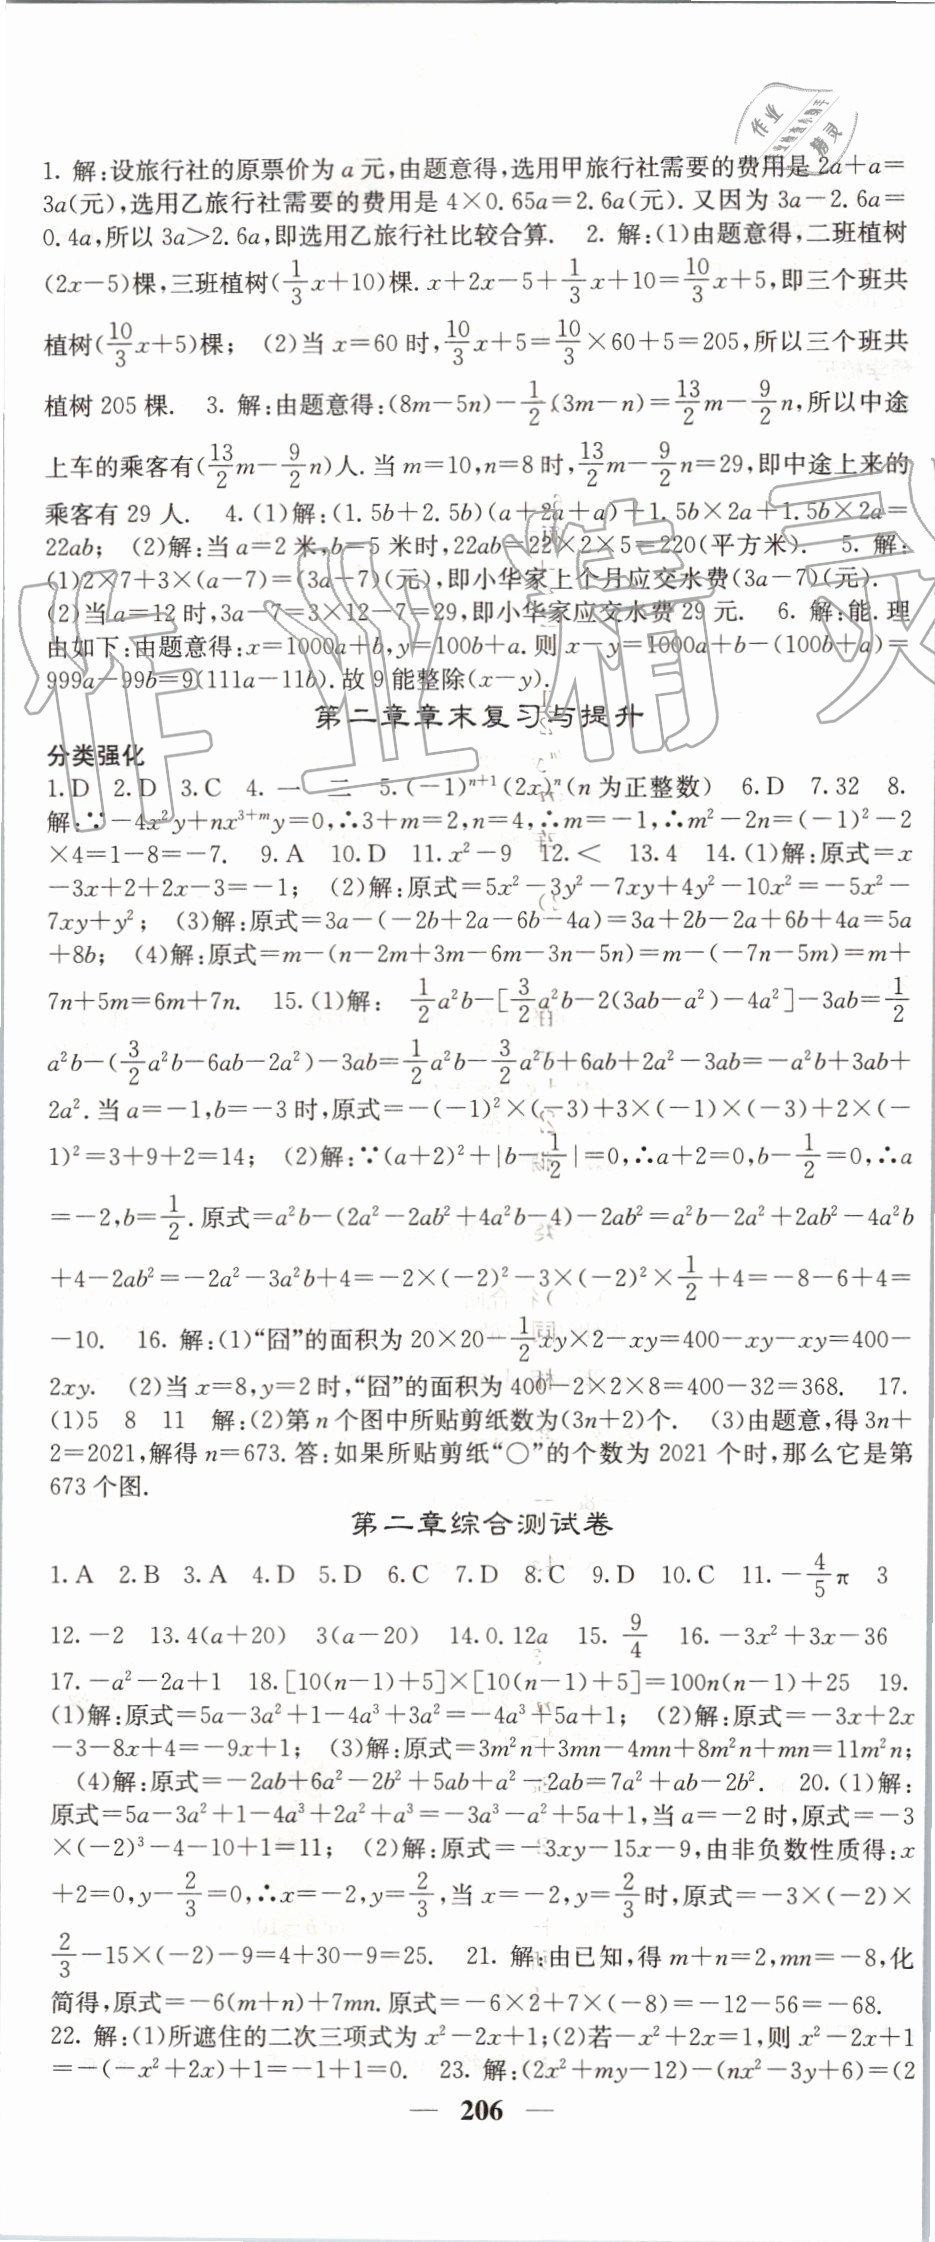 作业
精灵
1. 解:设旅行社的原票价为 a 元,由题意得,选用甲旅行社需要的费用是 2a+a=
3a(元),选用乙旅行社需要的费用是 4×0.65a=2.6a(元). 又因为 3a-2.6a=
0.4a,所以 3a>2.6a,即选用乙旅行社比较合算. 2. 解:(1)由题意得,二班植树
(2x-5)棵,三班植树(1/3x+10)棵. x+2x-5+1/3x+10=10/3x+5,即三个班共
植树(10/3x+5)棵; (2)当 x=60 时,10/3x+5=10/3×60+5=205,所以三个班共
植树 205 棵. 3. 解:由题意得:(8m-5n)-1/2(3m-n)=13/2m-9/2n,所以中途
上车的乘客有(13/2m-9/2n)人. 当 m=10,n=8 时,13/2m-9/2n=29,即中途上来的
乘客有 29 人. 4.(1)解:(1.5b+2.5b)(a+2a+a)+1.5b×2a+1.5b×2a=
22ab; (2)解:当 a=2 米,b=5 米时,22ab=22×2×5=220(平方米). 5. 解:
(1)2×7+3×(a-7)=(3a-7)(元),即小华家上个月应交水费(3a-7)(元).
(2)当 a=12 时,3a-7=3×12-7=29,即小华家应交水费 29 元. 6. 解:能. 理
由如下:由题意得:x=1000a+b,y=100b+a. 则 x-y=1000a+b-(100b+a)=
999a-99b=9(111a-11b). 故 9 能整除(x-y).
第二章章末复习与提升
分类强化
1.D 2.D 3.C 4. 一 二 5.(-1)ⁿ⁺¹(2x)ⁿ(n 为正整数) 6.D 7.32 8.
解:∵-4x²y+nx³⁺ᵐy=0,∴3+m=2,n=4,∴m=-1,∴m²-2n=(-1)²-2
×4=1-8=-7. 9.A 10.D 11.x²-9 12.< 13.4 14.(1)解:原式=x
-3x+2+2x-3=-1; (2)解:原式=5x²-3y²-7xy+4y²-10x²=-5x²-
7xy+y²; (3)解:原式=3a-(-2b+2a-6b-4a)=3a+2b-2a+6b+4a=5a
+8b; (4)解:原式=m-(n-2m+3m-6m-3n-5n)=m-(-7n-5m)=m+
7n+5m=6m+7n. 15.(1)解: 1/2a²b-[3/2a²b-2(3ab-a²)-4a²]-3ab=1/2
a²b-(3/2a²b-6ab-2a²)-3ab=1/2a²b-3/2a²b+6ab+2a²-3ab=-a²b+3ab+
2a². 当 a=-1,b=-3 时,原式=-(-1)²×(-3)+3×(-1)×(-3)+2×(-
1)²=3+9+2=14; (2)解:∵(a+2)²+|b-1/2|=0,∴a+2=0,b-1/2=0,∴a
=-2,b=1/2. 原式=a²b-(2a²-2ab²+4a²b-4)-2ab²=a²b-2a²+2ab²-4a²b
+4-2ab²=-2a²-3a²b+4=-2×(-2)²-3×(-2)²×1/2+4=-8-6+4=
-10. 16. 解:(1)“囧”的面积为 20×20-1/2xy×2-xy=400-xy-xy=400-
2xy. (2)当 x=8,y=2 时,“囧”的面积为 400-2×2×8=400-32=368. 17.
(1)5 8 11 解:(2)第 n 个图中所贴剪纸数为(3n+2)个. (3)由题意,得 3n+
2=2021,解得 n=673. 答:如果所贴剪纸“○”的个数为 2021 个时,那么它是第
673 个图.
第二章综合测试卷
1.A 2.B 3.A 4.D 5.D 6.C 7.D 8.C 9.D 10.C 11.-4/5π 3
12.-2 13.4(a+20) 3(a-20) 14.0.12a 15. 9/4 16.-3x²+3x-36
17.-a²-2a+1 18.[10(n-1)+5]×[10(n-1)+5]=100n(n-1)+25 19.
(1)解:原式=5a-3a²+1-4a³+3a²=-4a³+5a+1; (2)解:原式=-3x+2x
-3-8x+4=-9x+1; (3)解:原式=3m²n+3mn-4mn+8m²n+mn=11m²n;
(4)解:原式=-2ab+6a²-2b²+5ab+a²-2ab=7a²+ab-2b². 20.(1)解:
原式=5a-3a²+1-4a³+2a²+a³=-3a³-a²+5a+1,当 a=-2 时,原式=-3
×(-2)³-4-10+1=11; (2)解:原式=-3xy-15x-9,由非负数性质得:x
+2=0,y-2/3=0,∴x=-2,y=2/3,当 x=-2,y=2/3时,原式=-3×(-2)×
2/3-15×(-2)-9=4+30-9=25. 21. 解:由已知,得 m+n=2,mn=-8,化
简得,原式=-6(m+n)+7mn. 原式=-6×2+7×(-8)=-12-56=-68.
22. 解:(1)所遮住的二次三项式为 x²-2x+1;(2)若-x²+2x=1,则 x²-2x+1
=-(-x²+2x)+1=-1+1=0. 23. 解:(2x²+my-12)-(nx²-3y+6)=(2
— 206 —
作业精灵